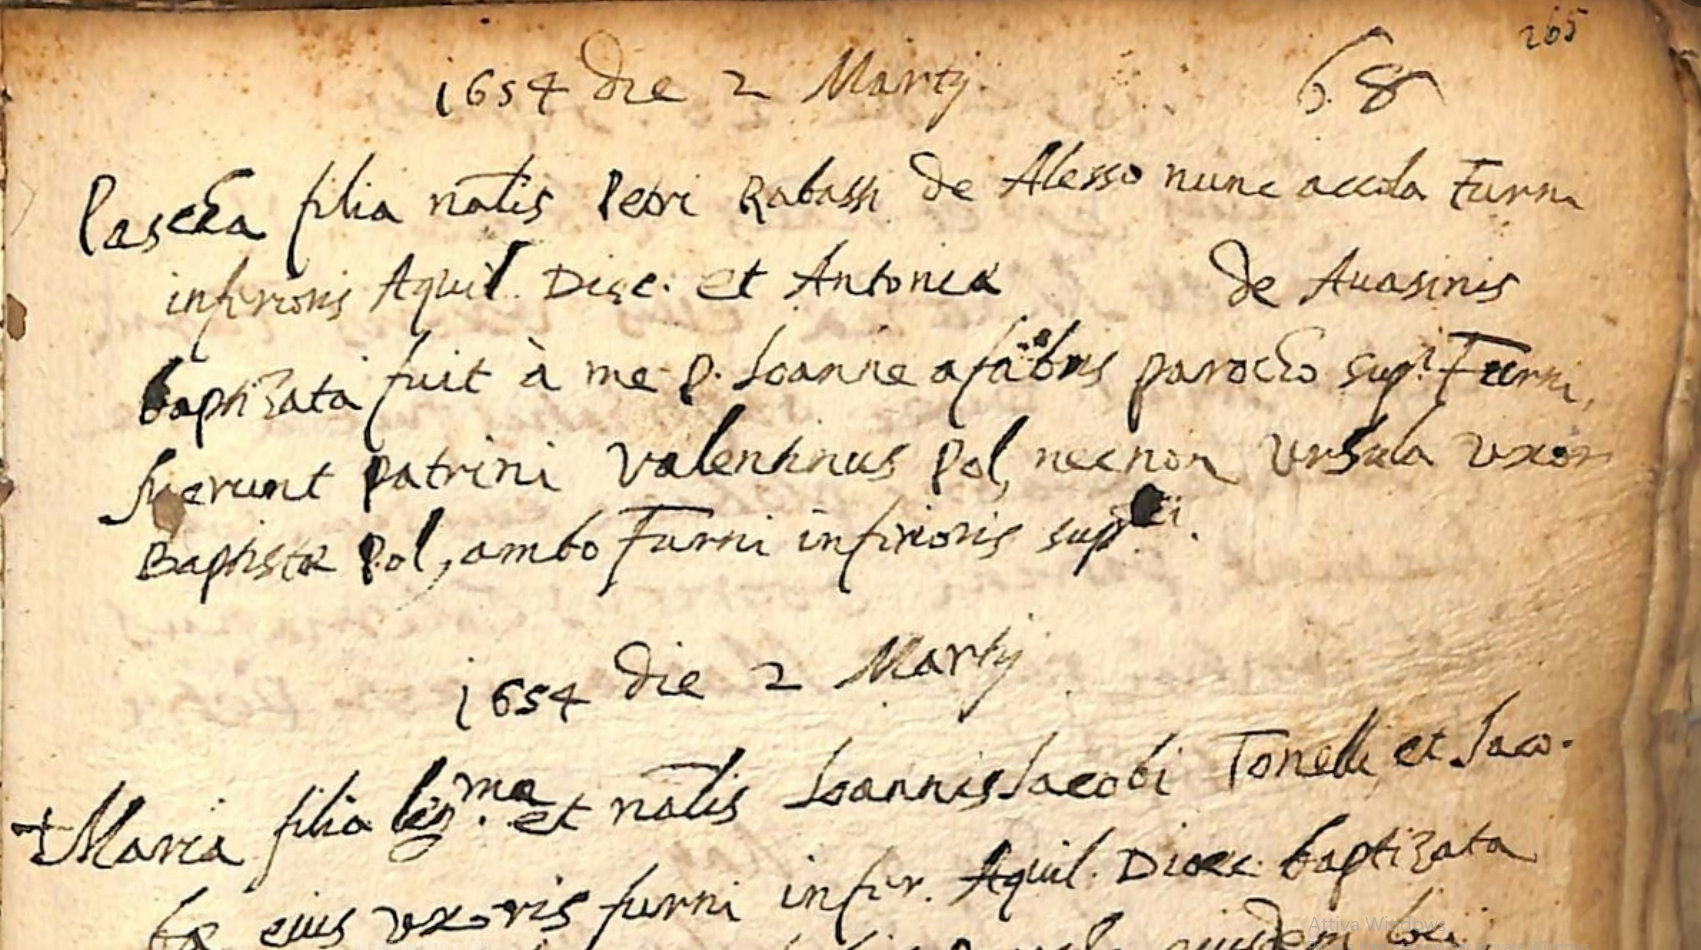 265
1654 die 2 Martÿ. 68
Pascha filia nalis Petri Rabassi de Alesso nunc accola Furni
inferioris Aquil. Diec. et Antonia de Auasinis
baptizata fuit à me P. Ioanne a fabris parocho sup.i Furni,
fuerunt patrini Valentinus Pol, necnon Vrsula vxor
Baptistæ Pol, ambo Furni inferioris sup.ti.
1654 die 2 Martÿ
+Maria filia leg.ma et nalis Ioannis Iacobi Tonelli et Iaco-
bæ eius vxoris furni infer. Aquil. Dioec. baptizata
eiusdem loci
Attiva Windows